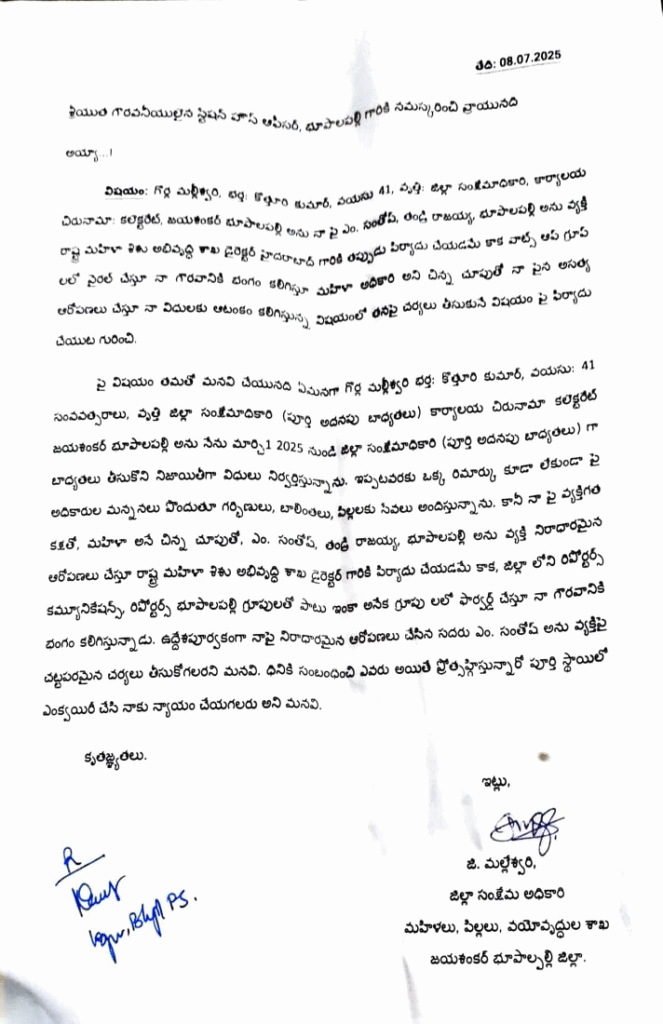 తేది: 08.07.2025
శ్రీయుత గౌరవనీయులైన స్టేషన్ హౌస్ ఆఫీసర్, భూపాలపల్లి గారికి నమస్కరించి వ్రాయునది
అయ్యా...!
విషయం: గొర్ల మల్లీశ్వరి, భర్త: కొత్తూరి కుమార్, వయసు 41, వృత్తి: జిల్లా సంక్షేమాధికారి, కార్యాలయ
చిరునామా: కలెక్టరేట్, జయశంకర్ భూపాలపల్లి అను నా పై ఎం. సంతోష్, తండ్రి రాజయ్య, భూపాలపల్లి అను వ్యక్తి
రాష్ట్ర మహిళా శిశు అభివృద్ధి శాఖ డైరెక్టర్ హైదరాబాద్ గారికి తప్పుడు పిర్యాదు చేయడమే కాక వాట్స్ ఆప్ గ్రూప్
లలో వైరల్ చేస్తూ నా గౌరవానికి భంగం కలిగిస్తూ మహిళా అధికారి అని చిన్న చూపుతో నా పైన అసత్య
ఆరోపణలు చేస్తూ నా విధులకు ఆటంకం కలిగిస్తున్న విషయంలో తనపై చర్యలు తీసుకునే విషయం పై పిర్యాదు
చేయుట గురించి.
పై విషయం తమతో మనవి చేయునది ఏమనగా గొర్ల మల్లీశ్వరి భర్త: కొత్తూరి కుమార్, వయసు: 41
సంవవత్సరాలు, వృత్తి జిల్లా సంక్షేమాధికారి (పూర్తి అదనపు బాధ్యతలు) కార్యాలయ చిరునామా కలెక్టరేట్
జయశంకర్ భూపాలపల్లి అను నేను మార్చి1 2025 నుండి జిల్లా సంక్షేమాధికారి (పూర్తి అదనపు బాధ్యతలు) గా
బాధ్యతలు తీసుకొని నిజాయితీగా విధులు నిర్వర్తిస్తున్నాను. ఇప్పటవరకు ఒక్క రిమార్కు కూడా లేకుండా పై
అధికారుల మన్ననలు పొందుతూ గర్భిణులు, బాలింతలు, పిల్లలకు సేవలు అందిస్తున్నాను. కానీ నా పై వ్యక్తిగత
కక్షతో, మహిళా అనే చిన్న చూపుతో, ఎం. సంతోష్, తండ్రి రాజయ్య, భూపాలపల్లి అను వ్యక్తి నిరాధారమైన
ఆరోపణలు చేస్తూ రాష్ట్ర మహిళా శిశు అభివృద్ధి శాఖ డైరెక్టర్ గారికి పిర్యాదు చేయడమే కాక, జిల్లా లోని రిపోర్టర్స్
కమ్యూనికేషన్స్, రిపోర్టర్స్ భూపాలపల్లి గ్రూపులతో పాటు ఇంకా అనేక గ్రూపు లలో ఫార్వర్డ్ చేస్తూ నా గౌరవానికి
భంగం కలిగిస్తున్నాడు. ఉద్దేశపూర్వకంగా నాపై నిరాధారమైన ఆరోపణలు చేసిన సదరు ఎం. సంతోష్ అను వ్యక్తిపై
చట్టపరమైన చర్యలు తీసుకోగలరని మనవి. దినికి సంబంధించి ఎవరు అయితే ప్రోత్సహిస్తున్నారో పూర్తి స్థాయిలో
ఎంక్వయిరీ చేసి నాకు న్యాయం చేయగలరు అని మనవి.
కృతజ్ఞ్యతలు.
ఇట్లు,
జి. మల్లేశ్వరి,
జిల్లా సంక్షేమ అధికారి
మహిళలు, పిల్లలు, వయోవృద్ధుల శాఖ
జయశంకర్ భూపాల్పల్లి జిల్లా.
R
Bhpl PS.